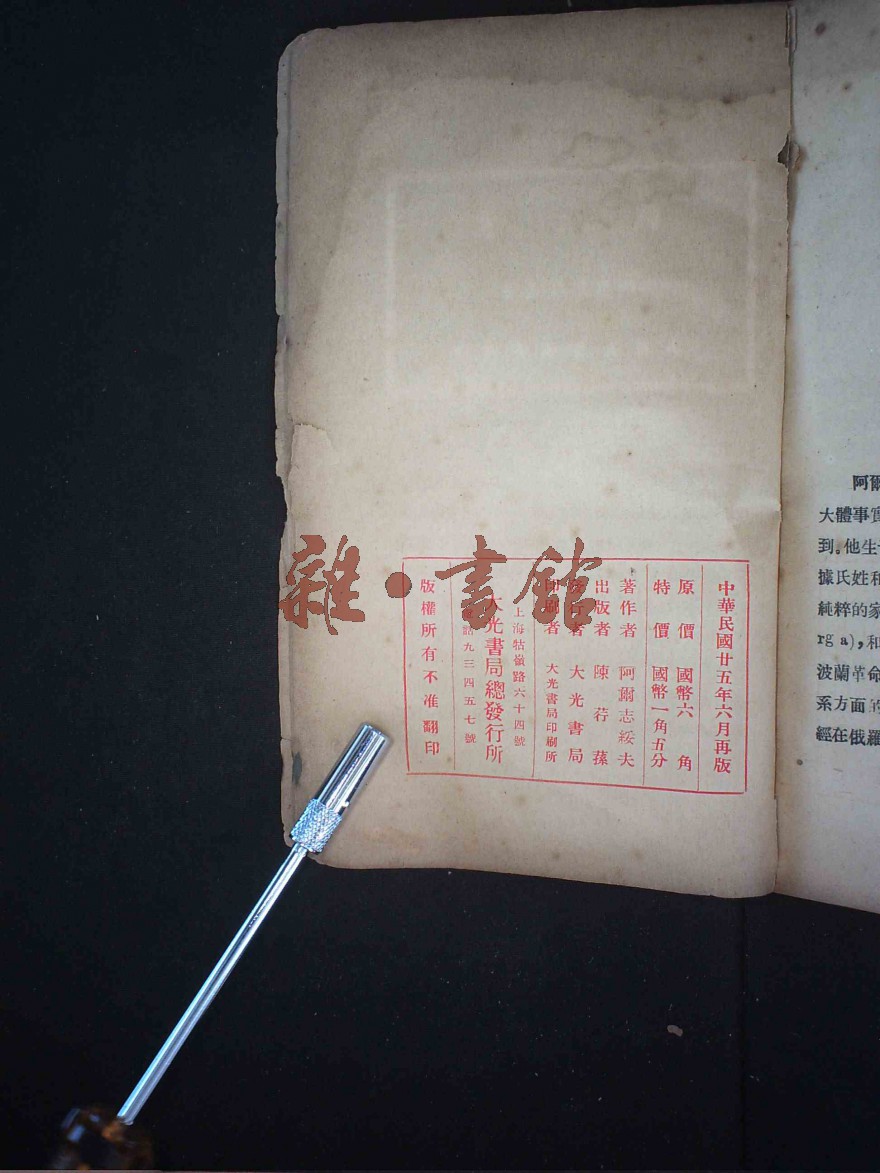 中華民國廿五年六月再版
原價 國幣六角
特價 國幣一角五分
著作者 阿爾志綏夫
出版者 陳荇蓀
發行者 大光書局
印刷者 大光書局印刷所
上海牯嶺路六十四號
大光書局總發行所
電話九三四五七號
版權所有不准翻印
雜·書館
阿爾
大體事實
到。他生
據氏姓和
純粹的家
rga),和
波蘭革命
系方面的
經在俄羅